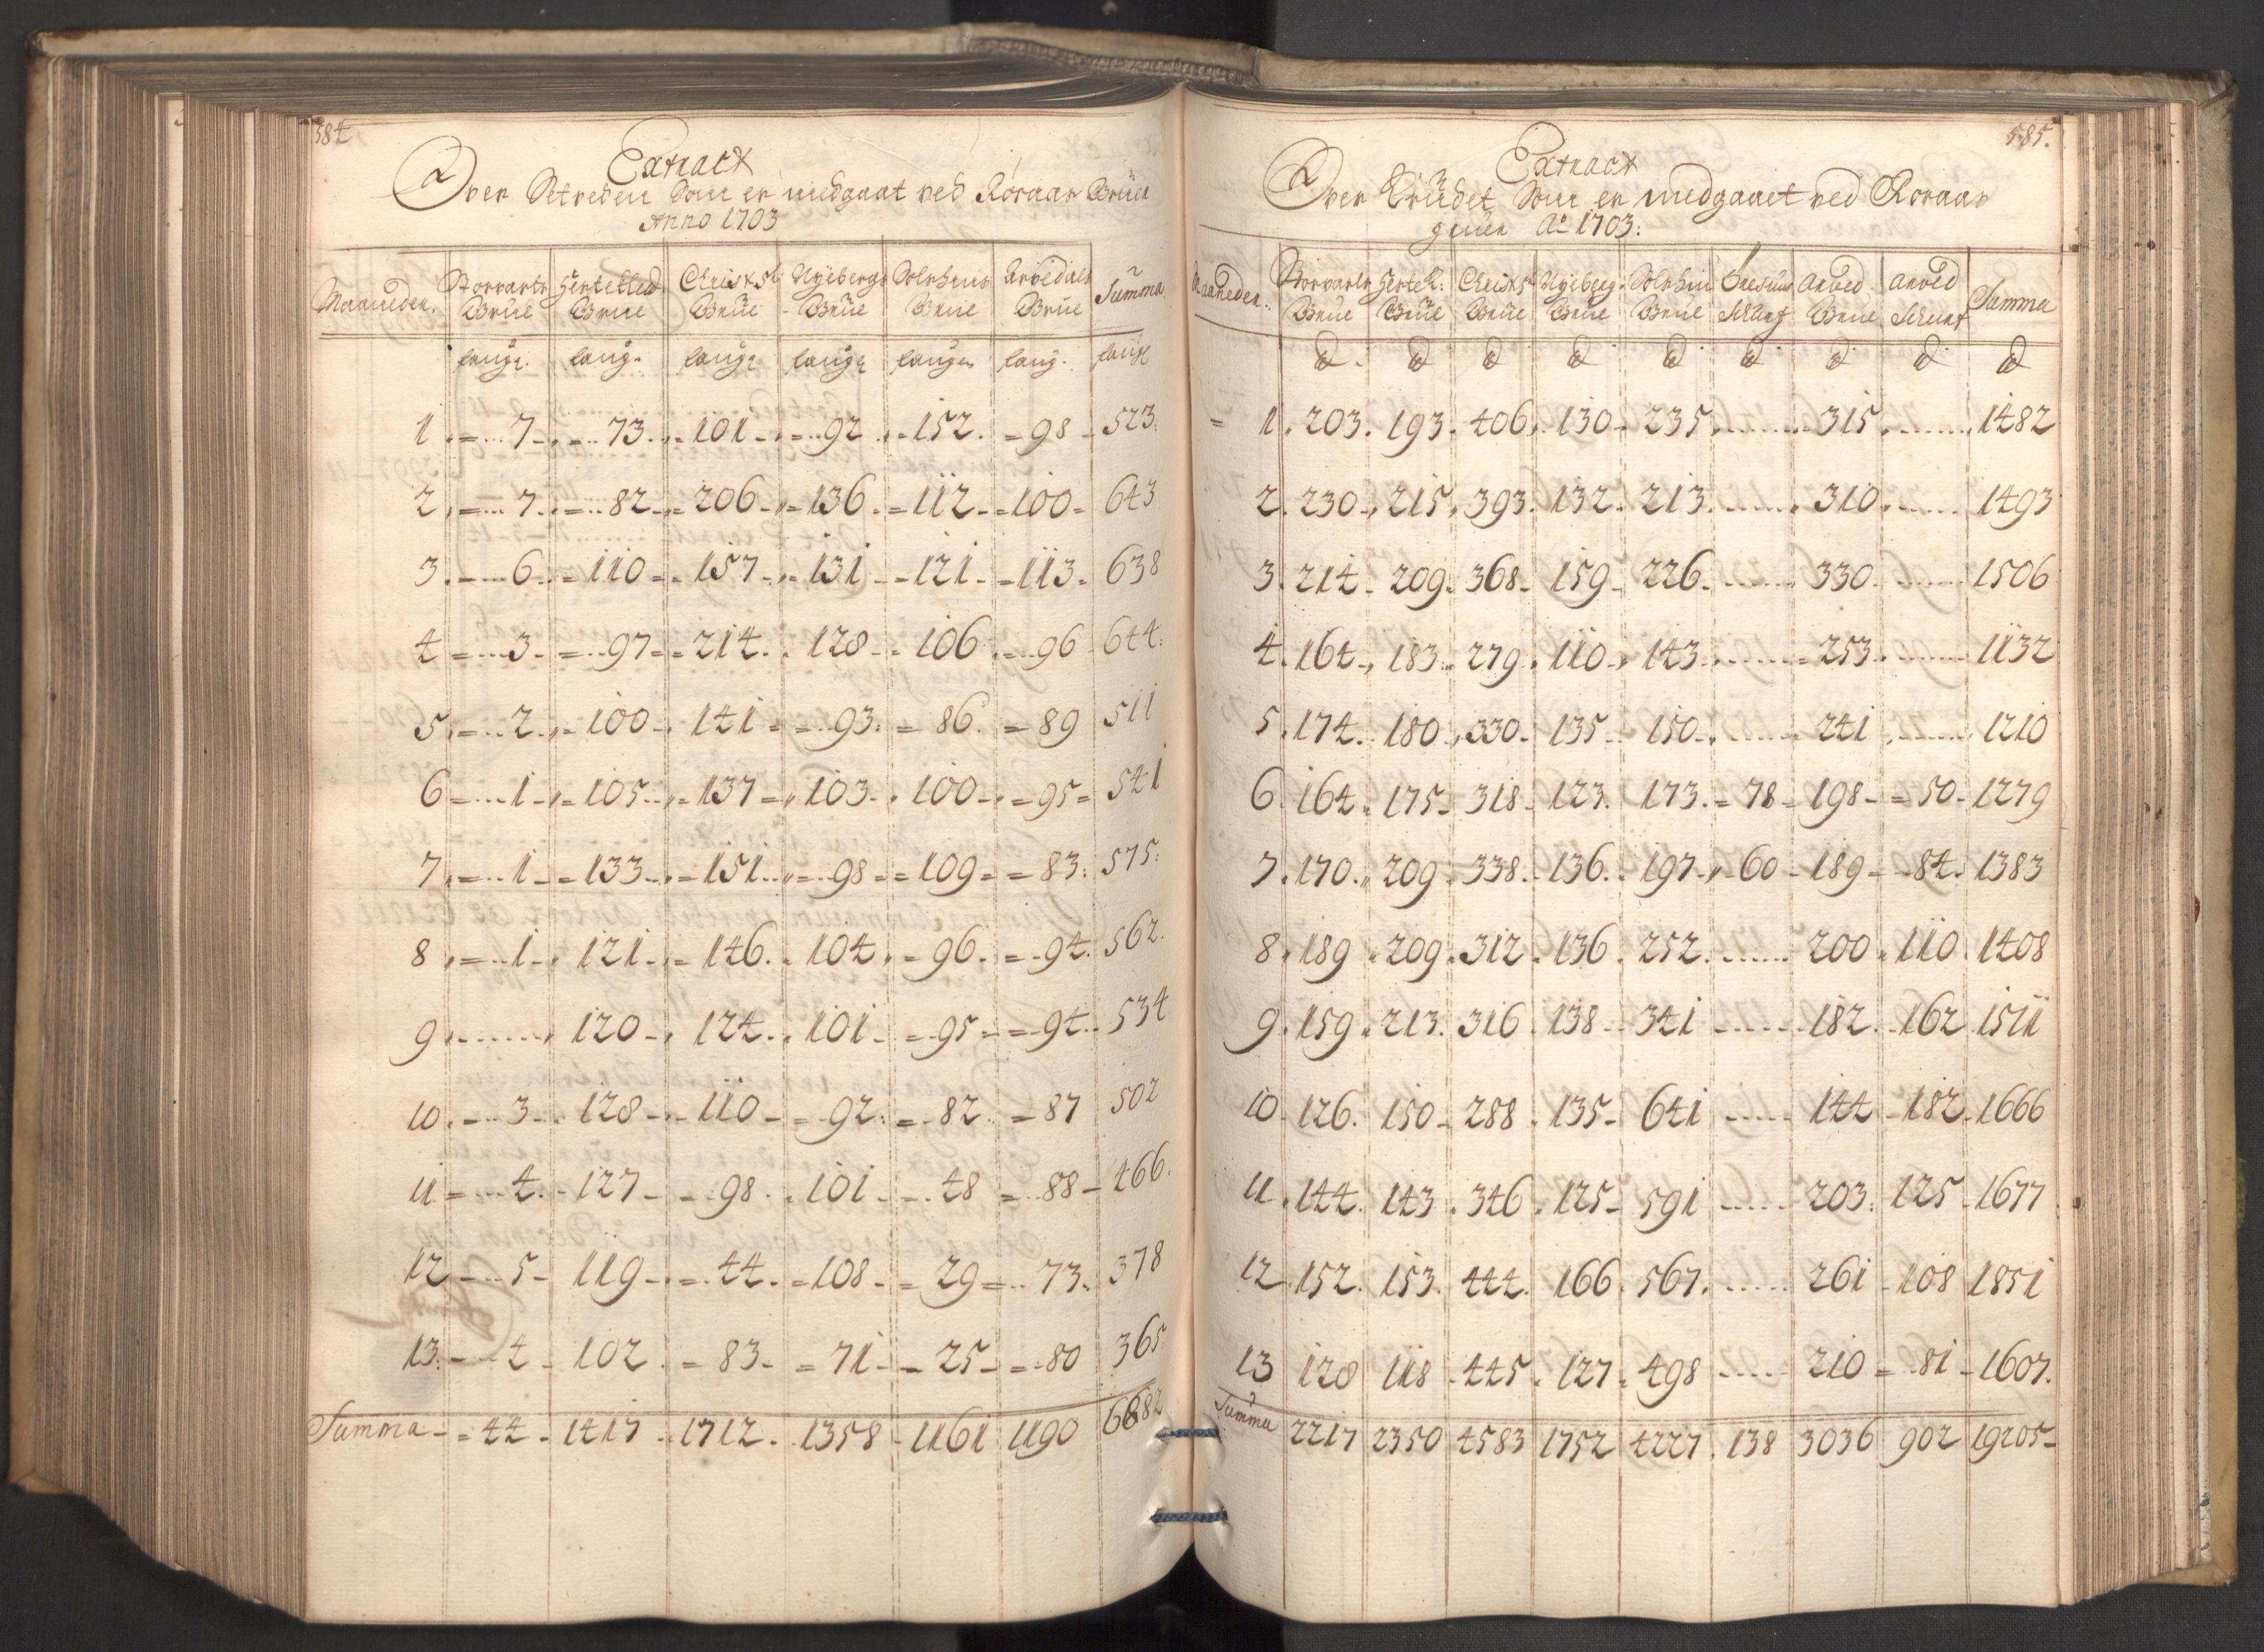 584
Extract
Over Setveden Som er medgaaet ved Røraas Grüer
Anno 1703
Maaneder. Storvarts Grüe Hestekled Grüe Christ: 5ti Grüe Nyebergs Grüe Solskins Grüe Arvedals Grüe Summa
faugr. faug. faugr faugr faugr faug. faugr
1 7 73 101 92 152 98 523
2 7 82 206 136 112 100 643
3 6 110 157 131 121 113 638
4 3 97 214 128 106 96 644
5 2 100 141 93 86 89 511
6 1 105 137 103 100 95 541
7 1 133 151 98 109 83 575
8 1 121 146 104 96 94 562
9 ........ 120 124 101 95 94 534
10 3 128 110 92 82 87 502
11 4 127 98 101 48 88 466
12 5 119 44 108 29 73 378
13 4 102 83 71 25 80 365
Summa 44 1417 1712 1358 1161 1190 6682
585.
Extract
Over Krudet Som er medgaaet ved Røraas
grüer Ao 1703:
Maaneder Storvarts Grüe Hestek: Grüe Christ 5ti Grüe Nyeberg Grüe Solskin Grüe Schurf Arved Grüe Arved Schurf Summa
1 203 193 406 130 235 ........ 315 ........ 1482
2 230 215 393 132 213 ........ 310 ........ 1493
3 214 209 368 159 226 ........ 330 ........ 1506
4 164 183 279 110 143 ........ 253 ........ 1132
5 174 180 330 135 150 ........ 241 ........ 1210
6 164 175 318 123 173 78 198 50 1279
7 170 209 338 136 197 60 189 84 1383
8 189 209 312 136 252 ........ 200 110 1408
9 159 213 316 138 341 ........ 182 162 1511
10 126 150 288 135 641 ........ 144 182 1666
11 144 143 346 125 591 ........ 203 125 1677
12 152 153 444 166 567 ........ 261 108 1851
13 128 118 445 127 498 ........ 210 81 1607
Summa 2217 2350 4583 1752 4227 138 3036 902 19205